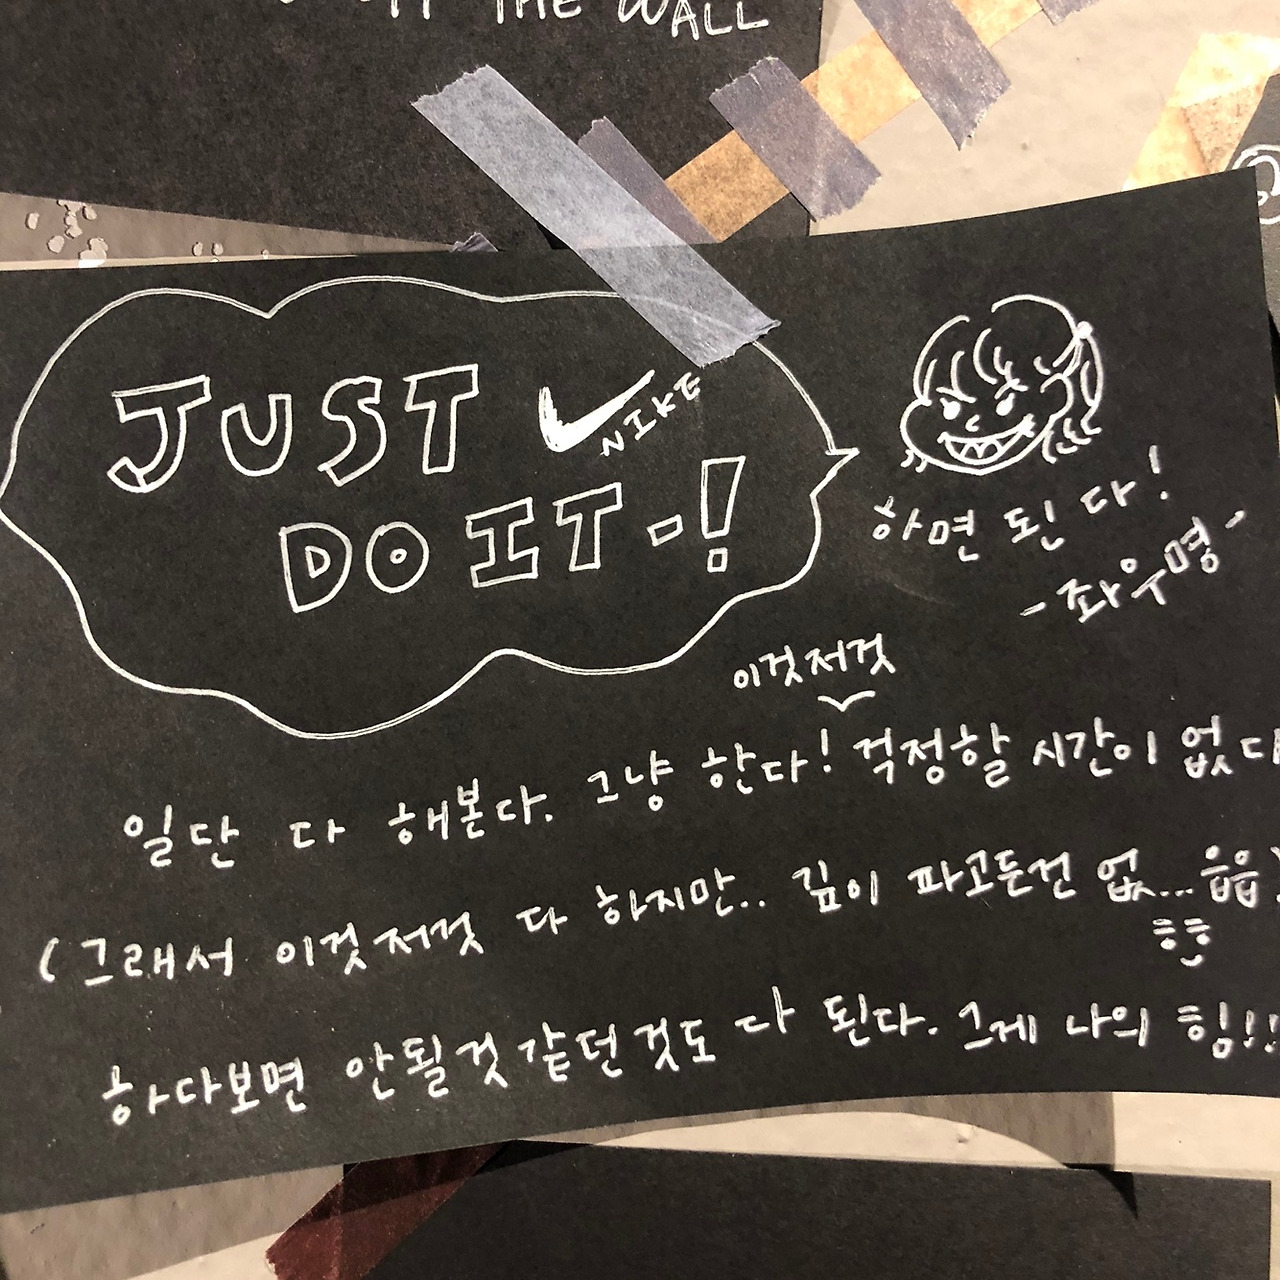 THE WALL
JUST
NIKE
DO IT-!
하면 된다!
-좌우명-
이것저것
일단 다 해본다. 그냥 한다! 걱정할 시간이 없다
(그래서 이것저것 다 하지만.. 깊이 파고든건 없...읍읍)
하다보면 안될것 같던것도 다 된다. 그게 나의 힘!!